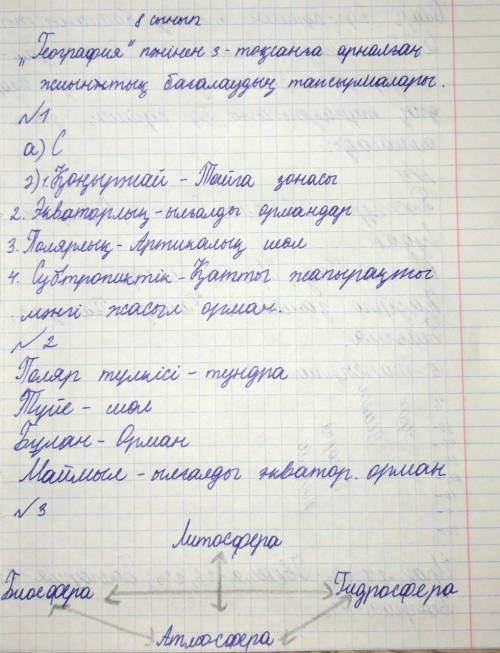 8 сынып
„География" пәнінен 3-тоқсанға арналған
жиынтық бағалаудың тапсырмалары.
№1
а) С
ә) 1. Қоңыржай - Тайга зонасы
2. Экваторлық - ылғалды ормандар
3. Полярлық - Артикалық шөл
4. Субтропиктік - Қатты жапырақты
мәңгі жасыл орман.
№2
Поляр түлкісі - тундра
Түйе - шөл
Бұлан - Орман
Маймыл - ылғалды экватор. орман
№3
Литосфера
Биосфера Гидросфера
Атмосфера